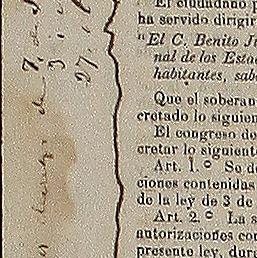 El ciudadano
ha servido dirigir
"El C. Benito
nal de los Esta
habitantes, sab
Que el soberan
cretado lo siguien
El congreso de
cretar lo siguiente
Art. 1.º Se de
ciones contenidas
de la ley de 3 de
Art. 2.º La s
autorizaciones co
presente ley, dur
de 7
3
27